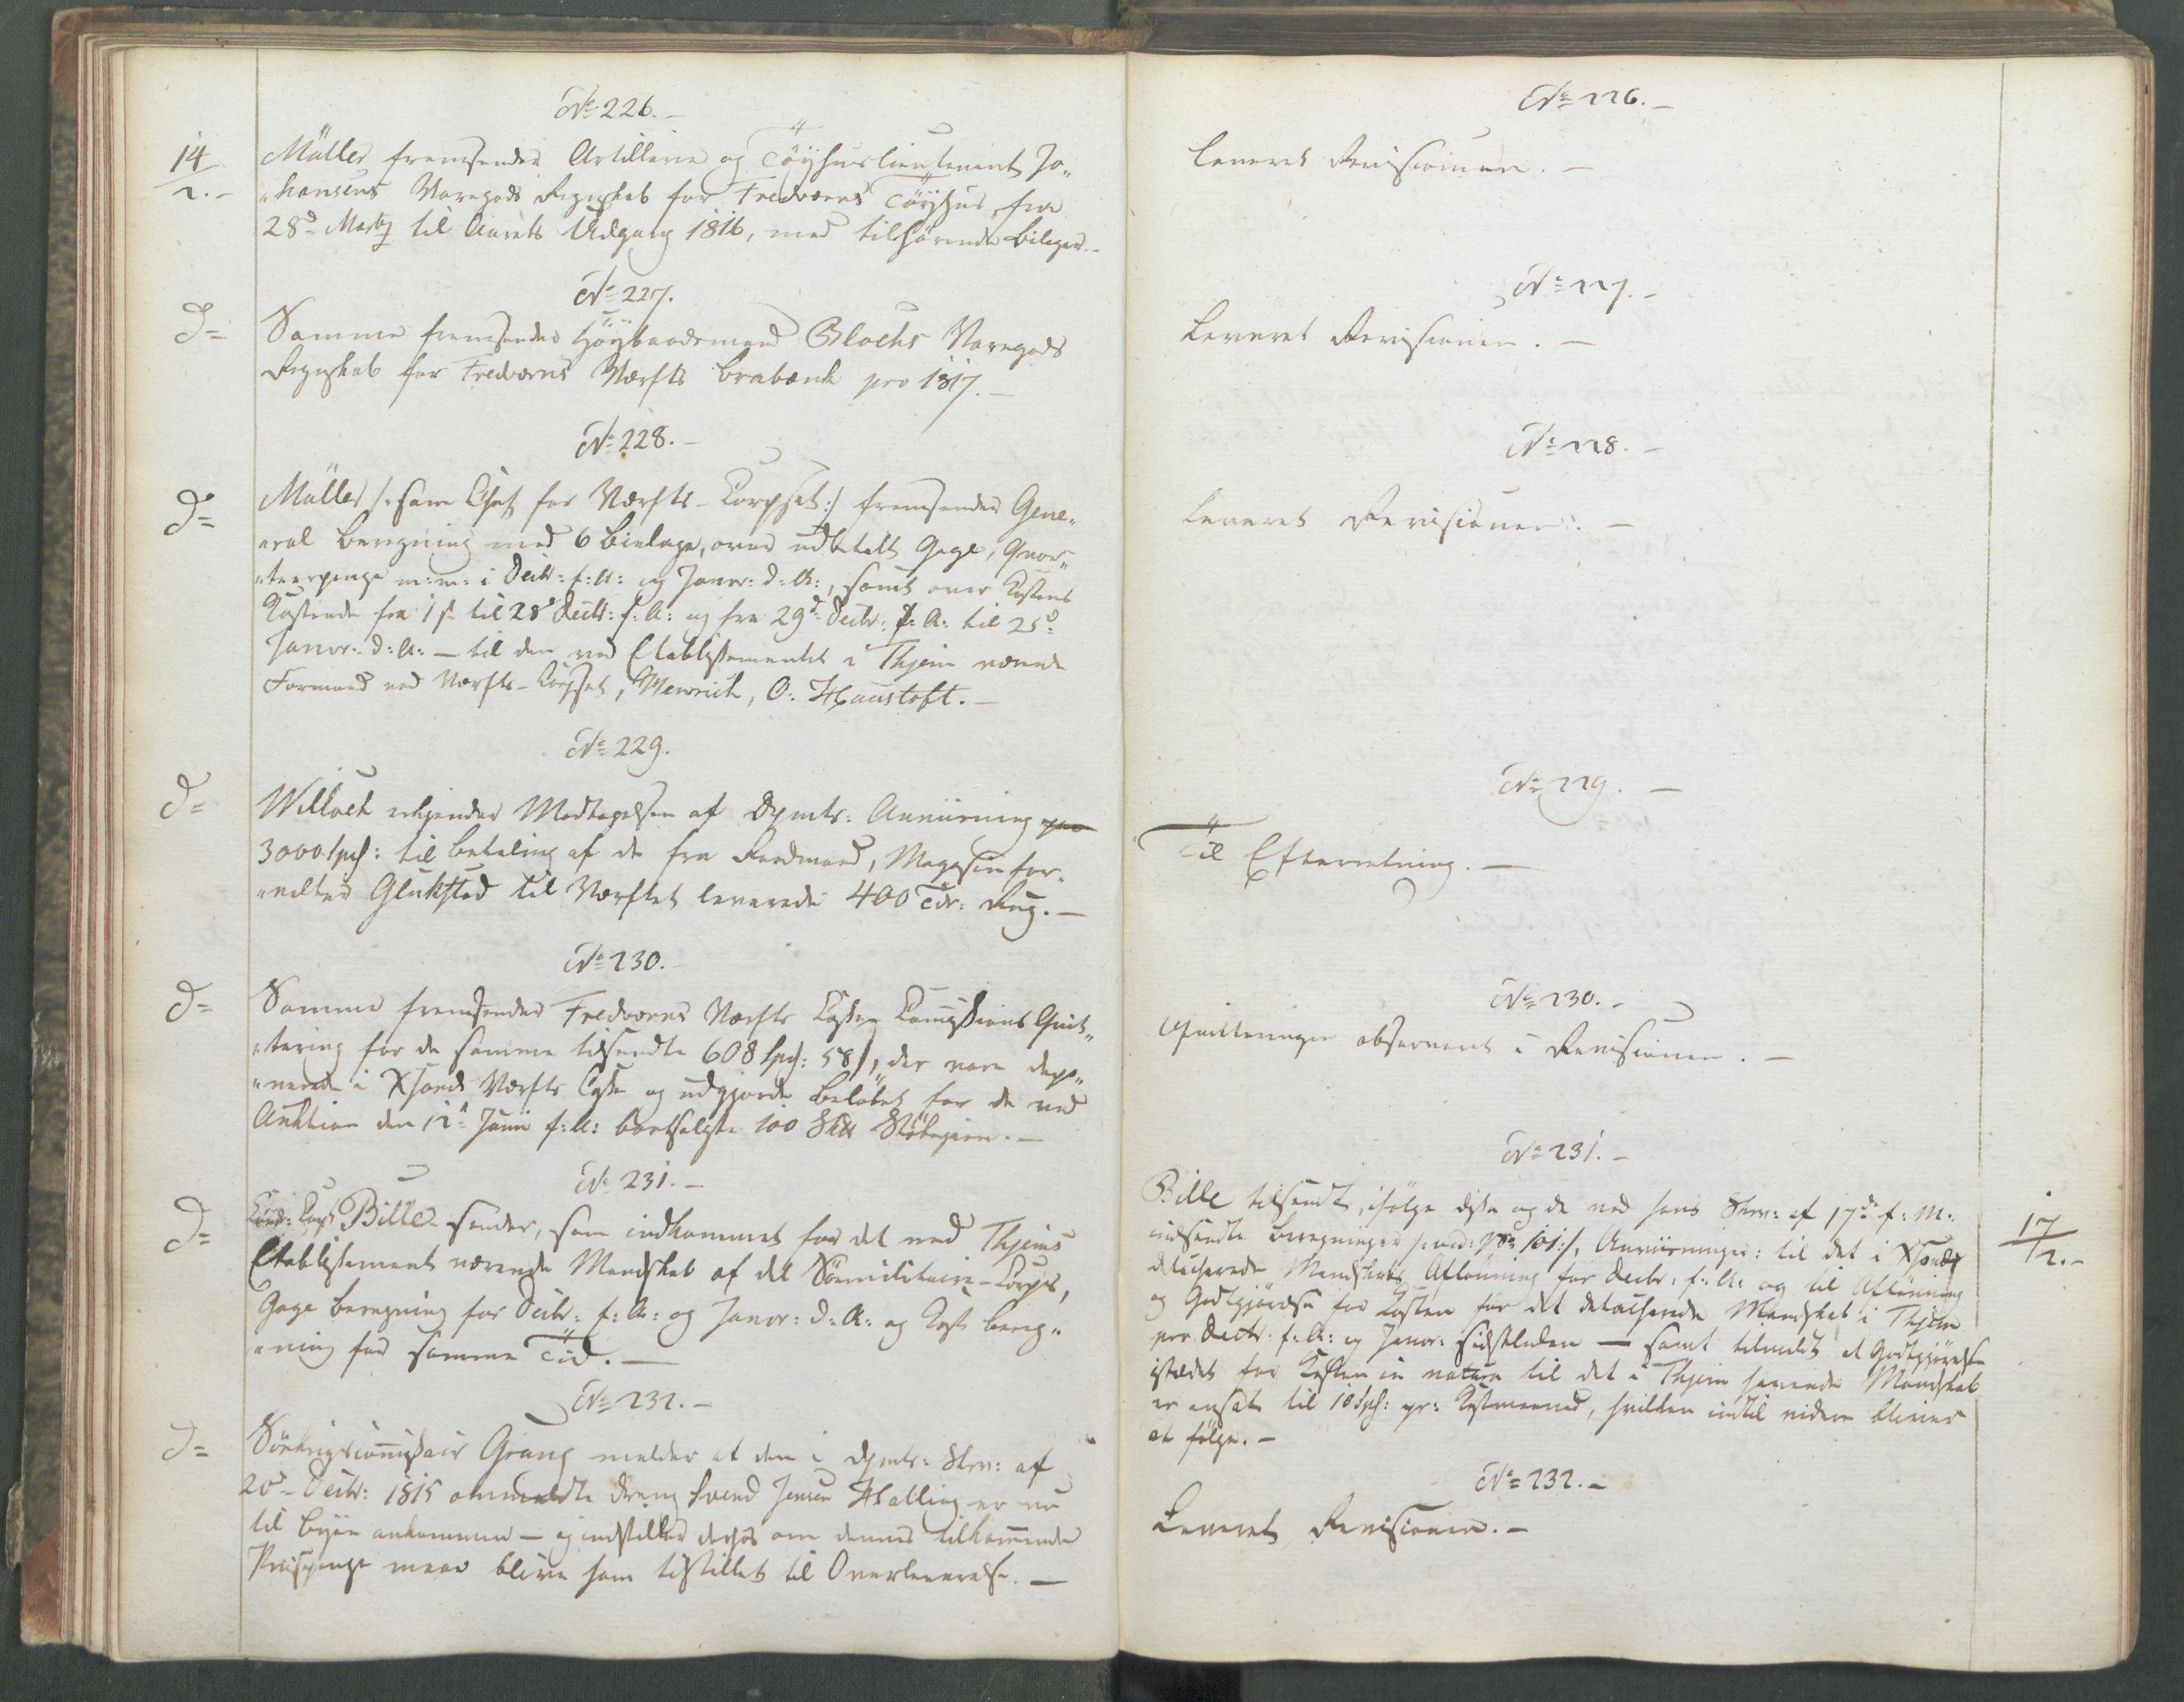 No 226.
14/2.-
Müller fremsender Artillerie og Töyhuuslieutenant Jo„
„hansens Varegods Regnskab for Fredværns Töyhus fra
28d Marty til Aarets Udgang 1816, med tilhørende Bilager.-
No 227.
d=
Samme fremsender Höybaadsmand Blochs Varegods
Regnskab for Fredværns Værfts Brabænk pro 1817.-
No 228.-
d=
Müller /: som Chef for Værfts-Corpset :/ fremsender Gene„
„ral Beregning med 6 Bielage, over udbetalt Gage, Qvar„
„teerpenge m:m: i Decbr: f:A: og Janvr: d:A:, samt over Kostens
Kostende fra 1st til 28d Decbr: f:A: og fra 29d Decbr: f:A: til 25d
Janvr: d:A: — til den ved Etablissementet i Thjem værende
Formand ved Værfts-Corpset, O: Haustoft.-
No 229.
d=
Willoch erkjender Modtagelsen af Dpmts: Anviisning
3000 Spd: til Betaling af de fra Raadmand, Magasinfor„
„valter Glükstad til Værftet leverede 400 Tdr: Rug.—
No 230.
d=
Samme fremsender Fredværns Værfts Casse Commissions Qvit„
„tering for de samme tilsendte 608 Spd: 58 s, der vare depo„
„nerede i Xsands Værfts Casse og udgjorde Beløbet for de ved
Auktion den 12t Junii f:A: bortsolgte 100 Støbejern.—
No 231.—
d=
Capt Bille sender, som indkommet for det ved Thjems
Etablissement værende Mandskab af det Söemilitaire-Corps,
Gage Beregning for Decbr: f:A: og Janvr: d:A: og Kost Bereg„
„ning for samme Tid.—
No 232.-
d=
Sökrigscommissair Grang melder at den i Dpmts: Skrv: af
20d Decbr: 1815 ommeldte dreng Svend Jensen Halling er nu
til Byen ankommen — og indstiller derhos om dennes tilkommende
Priispenge maae blive ham tilstillet til Overleverelse.—
No 226.-
Leveret Revisionen.-
No 227.-
Leveret Revisionen.-
No 228.-
Leveret Revisionen.-
No 229.—
Til Efterretning.—
No 230.-
Qvitteringen observeret i Revisionen.—
No 231.-
Bille tilsendt, ifølge disse og de ved hans Skrv: af 17de f:M:
indsendte Beregninger /: No 101 :/, Anviisninger: til det i Xsand
detacherede Mandskabs Aflönning for Decbr: f:A: og til Aflönning
og Godtgjörelse for Kosten for det detacherede Mandskab i Thjem
pro Decbr: f:A: og Janvr: sidstleden — samt tilmeldt at Godtgjörelse
istedet for Kosten in natura til det i Thjem havende Mandskab
er ansat til 10 Spd: pr: Kostmaaned, hvilken indtil videre bliver
at fölge.-
17/2.-
No 232.-
Leveret Revisionen.-